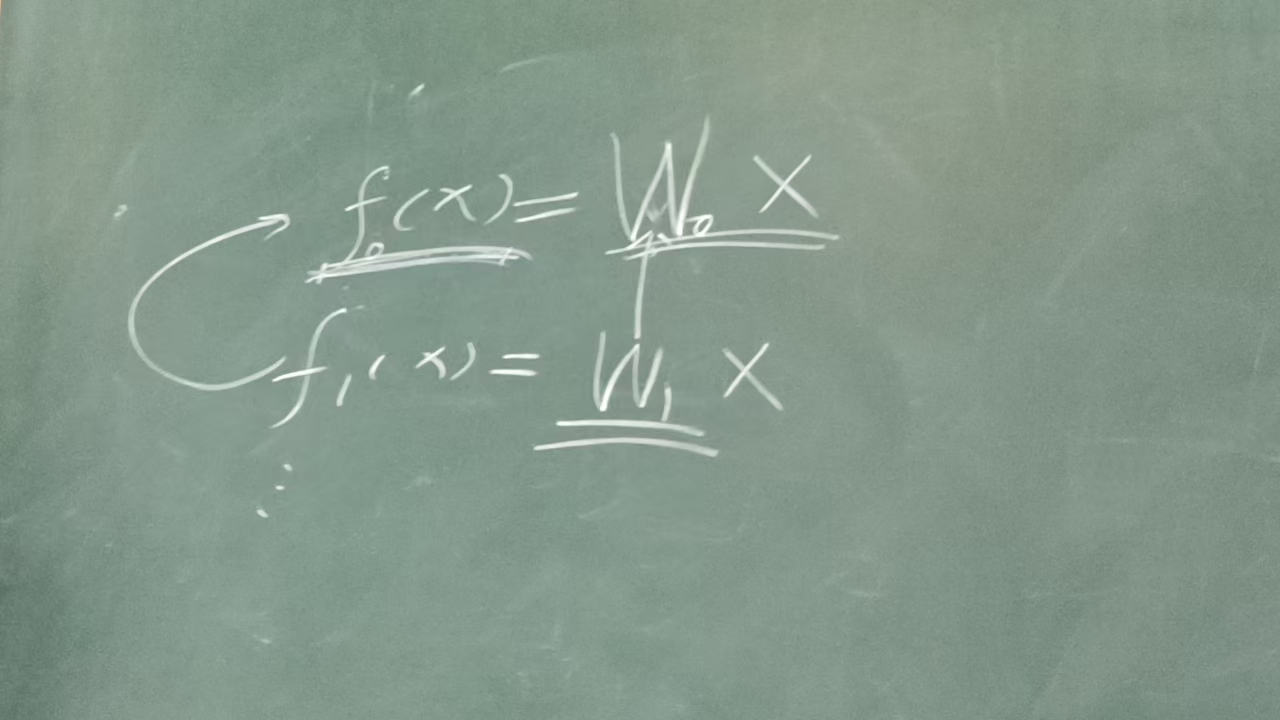 f₀(x) = W₀ X
f₁(x) = W₁ X
⋮